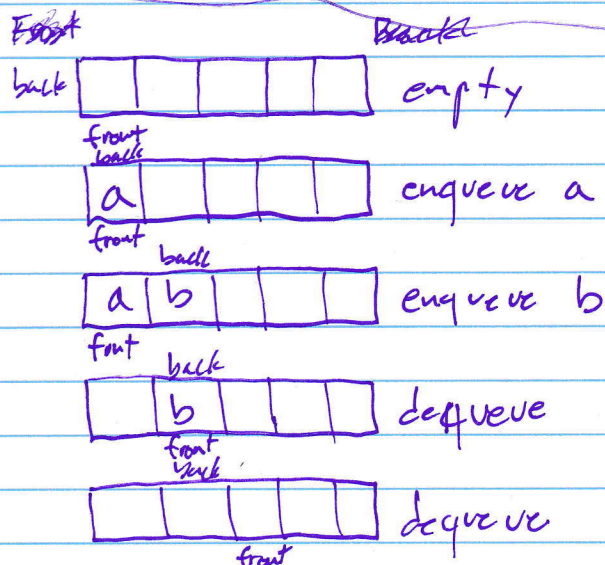 back empty
front
back
a enqueue a
front
back
a b enqueue b
font
back
b dequeue
front
back
dequeue
front